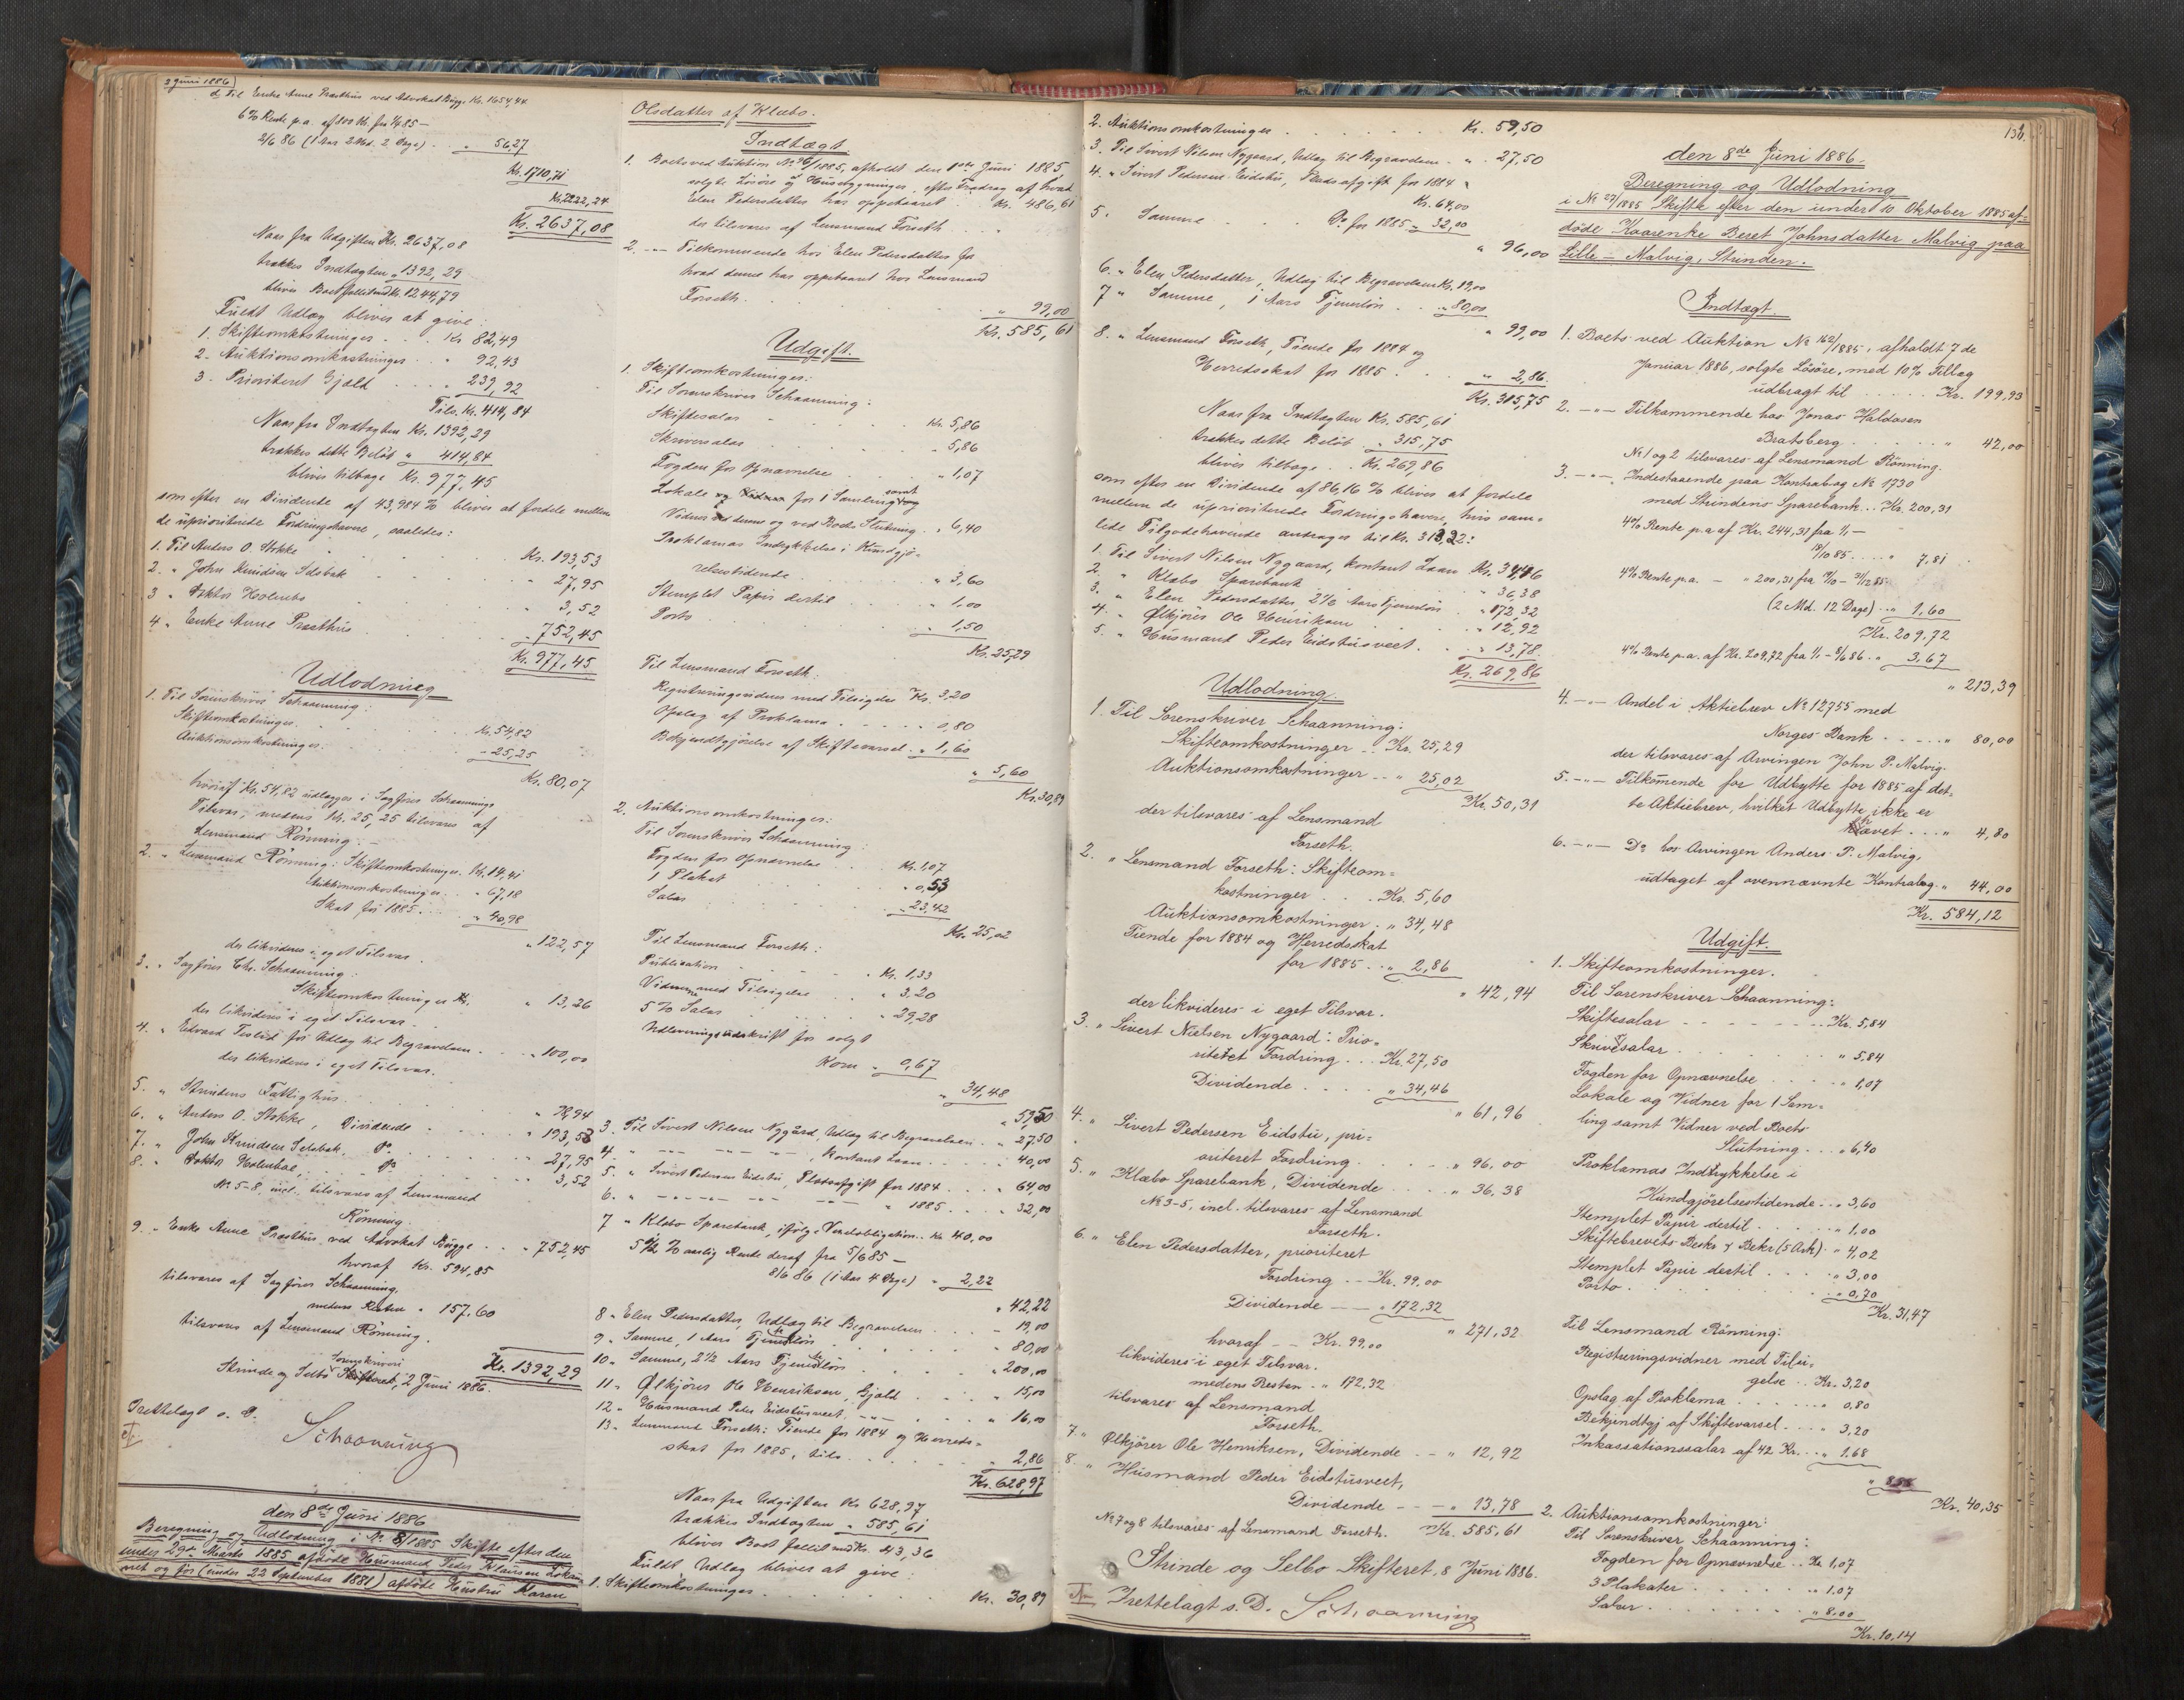 2 Juni 1886)
d. Til Enke Anne Præsthus ved Advokat Bugge Kr. 1654,44
6 % Rente p.a. af 800 Kr. fra 1/4 85 –
2/6 86 (1 Aar 2 Md. 2 Dage) . . „ 56,27
Kr. 1710,71
Kr. 2222,24
Kr. 2637,08
Naar fra Udgiften Kr. 2637,08
trækkes Indtægten „ 1392,29
bliver Boet fallit med Kr. 1244,79
Fuldt Udlæg bliver at give:
1. Skifteomkostninger . . . Kr 82,49
2. Auktionsomkostninger . . „ 92,43
3. Prioriteret Gjæld . . . . „ 239,92
Tils. Kr. 414,84
Naar fra Indtægten Kr. 1392,29
trækkes dette Beløb „ 414,84
bliver tilbage Kr. 977,45
som efter en Dividende af 43,984 % bliver at fordele mellem
de uprioriterede Fordringshavere, saaledes:
1. Til Anders O. Stokke . . Kr. 193,53
2. „ John Knudsen Selsbak . . „ 27,95
3 „ Doktor Holmboe . . „ 3,52
4 „ Enke Anne Præsthus . . „ 752,45
Kr. 977,45
Udlodning
1. Til Sorenskriver Schaanning:
Skifteomkostninger. . . Kr. 54,82
Auktionsomkostninger. . . „ 25,25
Kr. 80,07
hvoraf Kr. 54,82 udlægges i Sagfører Schaannings
Tilsvar, medens Kr. 25,25 tilsvares af
Lensmand Rönning. –
2. „ Lensmand Rönning: Skifteomkostninger. Kr. 14,41
Auktionsomkostninger. . „ 67,18
Skat for 1885. . . „ 40,98
„ 122,57
der likvideres i eget Tilsvar.
3. „ Sagfører Chr. Schaanning:
Skifteomkostninger Kr. „ 13,26
der likvideres i eget Tilsvar.
4. „ Edvard Teslid for Udlæg til Begravelsen . . „ 100,00
der likvideres i eget Tilsvar.
5. „ Strindens Fattighus. . . „ 98,94
6. „ Anders O. Stokke, Dividende . . „ 193,53
7. „ John Knudsen Selsbak, Do . . „ 27,95
8. „ Doktor Holmboe, Do . . 3,52
No 5-8 incl. tilsvares af Lensmand
Rönning.
9. „ Enke Anne Præsthus ved Advokat Bugge . . „ 752,45
hvoraf Kr. 594,85
tilsvares af Sagfører Schaanning,
medens Resten „ 157.60
tilsvares af Lensmand Rönning.
Kr. 1392,29
Strinde og Selbo Sorenskriveri Skifteret, 2 Juni 1886.
Irettelagt s. D.
Schaanning
den 8de Juni 1886
Beregning og Udlodning i No 8/1885 Skifte efter den
under 29de Marts 1885 afdöde Husmand Peder Klausen Lokun
vet og for (under 22 September 1881) afdöde Hustru Karen
Olsdatter af Klæbo.
Indtægt
1. Boets ved Auktion No 76/1885, afholdt den 1ste Juni 1885,
solgte Lösöre og Husbygninger, efter Fradrag af hvad
Elen Pedersdatter har oppebaaret . Kr. 486,61
der tilsvares af Lensmand Forseth . .
2. –„– Tilkommende hos Elen Pedersdatter for
hvad denne har oppebaaret hos Lensmand
Forseth. . . . „ 99,00
Kr. 585,61
Udgift.
1. Skifteomkostninger:
Til Sorenskriver Schaanning:
Skiftesalar . . Kr. 5,86
Skriversalar . . „ 5,86
Fogden for Opnævnelse . . „ 1,07
Lokale og Vidner for 1 Samling samt
Vidner ved denne og ved Boets Slutning . „ 6,40
Proklamas Indrykkelse i Kundgjø-
relsestidende . . „ 3,60
Stemplet Papir dertil . . „ 1,00
Porto . . „ 1,50
Kr. 25,29
Til Lensmand Forseth:
Registreringsvidner med Tilsigelse Kr. 3,20
Opslag af Proklama . . . 0,80
Bekjendtgjörelse af Skiftevarsel . „ 1,60
„ 5,60
Kr. 30,89
2. Auktionsomkostninger:
Til Sorenskriver Schaanning:
Fogden for Opnævnelse . . Kr. 1,07
1 Plakat . . „ 0,53
Salar . . „ 23,42
Kr. 25,02
Til Lensmand Forseth:
Publikation . . Kr. 1,33
Vidnerne med Tilsigelse . . „ 3,20
5 % Salar . . „ 29,28
Udleveringsudskrift for solgt
Korn „ 0,67
„ 34,48
„ 59,50
3. Til Sivert Nilsen Nygård, Udlæg til Begravelsen . . „ 27,50
4. „ –„– –„– –„– , kontant Laan . . „ 40,00
5. „ Sivert Pedersen Eidstu, Pladsafgift for 1884 . . „ 64,00
6. „ –„– –„– –„– „ 1885 . . „ 32,00
7 „ Klæbo Sparebank, ifølge Vexelobligation . Kr 40,00
5 1/2 % aarlig Rente deraf fra 5/6 85 –
8/6 86 (1 Aar 4 Dage) „ 2,22
„ 42,22
8 „ Elen Pedersdatter, Udlæg til Begravelsen . . – 19,00
9 „ Samme, 1 Aars Tjenerløn . . „ 80,00
10 „ Samme, 2 1/2 Aars Tjenerløn . . „ 200,00
11 „ Ølkjörer Ole Henriksen, Gjæld . . „ 15,00
12 „ Husmand Peder Eidstusveet, –„– . . „ 16,00
13 „ Lensmand Forseth: Tiende for 1884 og Herreds-
skat for 1885, tils. . . „ 2,86
Kr. 628,97
Naar fra Udgiften Kr 628,97
trækkes Indtægten „ 585,61
bliver Boet fallit med Kr. 43,36
Fuldt Udlæg bliver at give:
1. Skifteomkostninger . . Kr. 30,89
2. Auktionsomkostninger . . . . Kr. 59,50
3. Til Sivert Nilsen Nygaard, Udlæg til Begravelsen . „ 27,50
4. „ Sivert Pedersen Eidstu, Pladsafgift for 1884 „
Kr. 64,00
5. „ Samme . . Do for 1885 „ 32,00
„ 96,00
6. „ Elen Pedersdatter, Udlæg til Begravelsen Kr. 19,00
7 „ Samme, 1 Aars Tjenerløn . . „ 80,00
„ 99,00
8. „ Lensmand Forseth, Tiende for 1884 og
Herredsskat for 1885 . . „ 2,86
Kr. 315,75
Naar fra Indtægten Kr. 585,61
trækkes dette Beløb „ 315,75
bliver tilbage . . Kr. 269,86
som efter en Dividende af 86,16 % bliver at fordele
mellem de uprioriterede Fordringshavere, hvis sam-
lede Tilgodehavende andrager til Kr. 313,22:
1. Til Sivert Nilsen Nygaard, kontant Laan Kr. 34,46
2. „ Klæbo Sparebank . . „ 36,38
3. „ Elen Pedersdatter, 2 1/2 Aars Tjenerløn . „ 172,32
4. „ Ølkjörer Ole Henriksen . . „ 12,92
5. „ Husmand Peder Eidstusveet . . „ 13,78
Kr. 269,86
Udlodning.
1. Til Sorenskriver Schaanning:
Skifteomkostninger . . Kr. 25,29
Auktionsomkostninger . . „ 25,02
Kr. 50,31
der tilsvares af Lensmand
Forseth.
2. „ Lensmand Forseth: Skifteom-
kostninger . . . Kr. 5,60
Auktionsomkostninger . „ 34,48
Tiende for 1884 og Herredsskat
for 1885 . . „ 2,86
„ 42,94
der likvideres i eget Tilsvar.
3. „ Sivert Nielsen Nygaard: Prio-
riteret Fordring . . . Kr. 27,50
Dividende . . . . „ 34,46
„ 61,96
4. „ Sivert Pedersen Eidstu, pri-
oriteret Fordring . . . „ 96.00
5. „ Klæbo Sparebank, Dividende . . „ 36.38
No 3-5, incl. tilsvares af Lensmand
Forseth.
6. „ Elen Pedersdatter, prioriteret
Fordring . – Kr. 99.00
Dividende – – „ 172,32
„ 271,32
hvoraf – – Kr. 99,00
likvideres i eget Tilsvar.
medens Resten . „ 172,32
tilsvares af Lensmand
Forseth.
7 „ Ølkjörer Ole Henriksen, Dividende . – „ 12,92
8. „ Husmand Peder Eidstusveet,
Dividende – – – „ 13,78
No 7 og 8 tilsvares af Lensmand Forseth. Kr. 585,61
Strinde og Selbo Skifteret, 8 Juni 1886.
Irettelagt s. D. Schaanning
136.
den 8de Juni 1886.
Beregning og Udlodning
i No 27/1885 Skifte efter den under 10 Oktober 1885 af-
döde Kaarenke Beret Johnsdatter Malvig paa
Lille-Malvig, Strinden.
Indtægt
1. Boets ved Auktion No 162/1885, afholdt 7de
Januar 1886, solgte Lösöre, med 10 % Tillæg
udbragt til . . . . . Kr. 199,93
2. –„– Tilkommende hos Jonas Haldosen
Bratsberg . . . . . „ 42,00
No 1 og 2 tilsvares af Lensmand Rönning.
3. –„– Indestaaende paa Kontrabog No 1730
med Strindens Sparebank . . Kr. 200,31
4% Rente p.a. af Kr. 244,31 fra 1/1 –
19/10 85 . . . „ 7,81
4% Rente p.a. – „ 200,31 fra 19/10 – 31/12 85
(2 Md. 12 Dage) . . „ 1,60
Kr. 209.72
4% Rente p.a. af Kr. 209,72 fra 1/1 – 8/6 86 . „ 3,67
„ 213,39
4. –„– Andel i Aktiebrev No 12755 med
Norges Bank . . . . „ 80,00
der tilsvares af Arvingen John P. Malvig.
5. –„– Tilkommende for Udbytte for 1885 af det-
te Aktiebrev, hvilket Udbytte ikke er
hævet . . . „ 4,80
6. –„– Do hos Arvingen Anders P. Malvig,
udtaget af ovennævnte Kontrabog . „ 44,00
Kr. 584,12
Udgift.
1. Skifteomkostninger.
Til Sorenskriver Schaanning:
Skiftesalar . . . Kr. 5,84
Skriversalar . . . „ 5,84
Fogden for Opnævnelse . . . „ 1,07
Lokale og Vidner for 1 Sam-
ling samt Vidner ved Boets
Slutning . . . „ 6,40
Proklamas Indrykkelse i
Kundgjörelsestidende . . „ 3,60
Stemplet Papir dertil . . . „ 1,00
Skiftebrevets Beskr. & Bekr. (5 Ark) . „ 4,02
Stemplet Papir dertil . . . „ 3,00
Porto . . . „ 0,70
Kr. 31,47
Til Lensmand Rönning:
Registreringsvidner med Tilsi-
gelse . . Kr. 3,20
Opslag af Proklama . . . „ 0,80
Bekjendtgj. af Skiftevarsel . . . „ 3,20
Inkassationssalar af 42 Kr. . . „ 1.68
„ 8,88
Kr. 40,35
2. Auktionsomkostninger:
Til Sorenskriver Schaanning:
Fogden for Opnævnelse . . Kr. 1,07
3 Plakater . . . „ 1.07
Salar . . . „ 8,00
Kr. 10,14